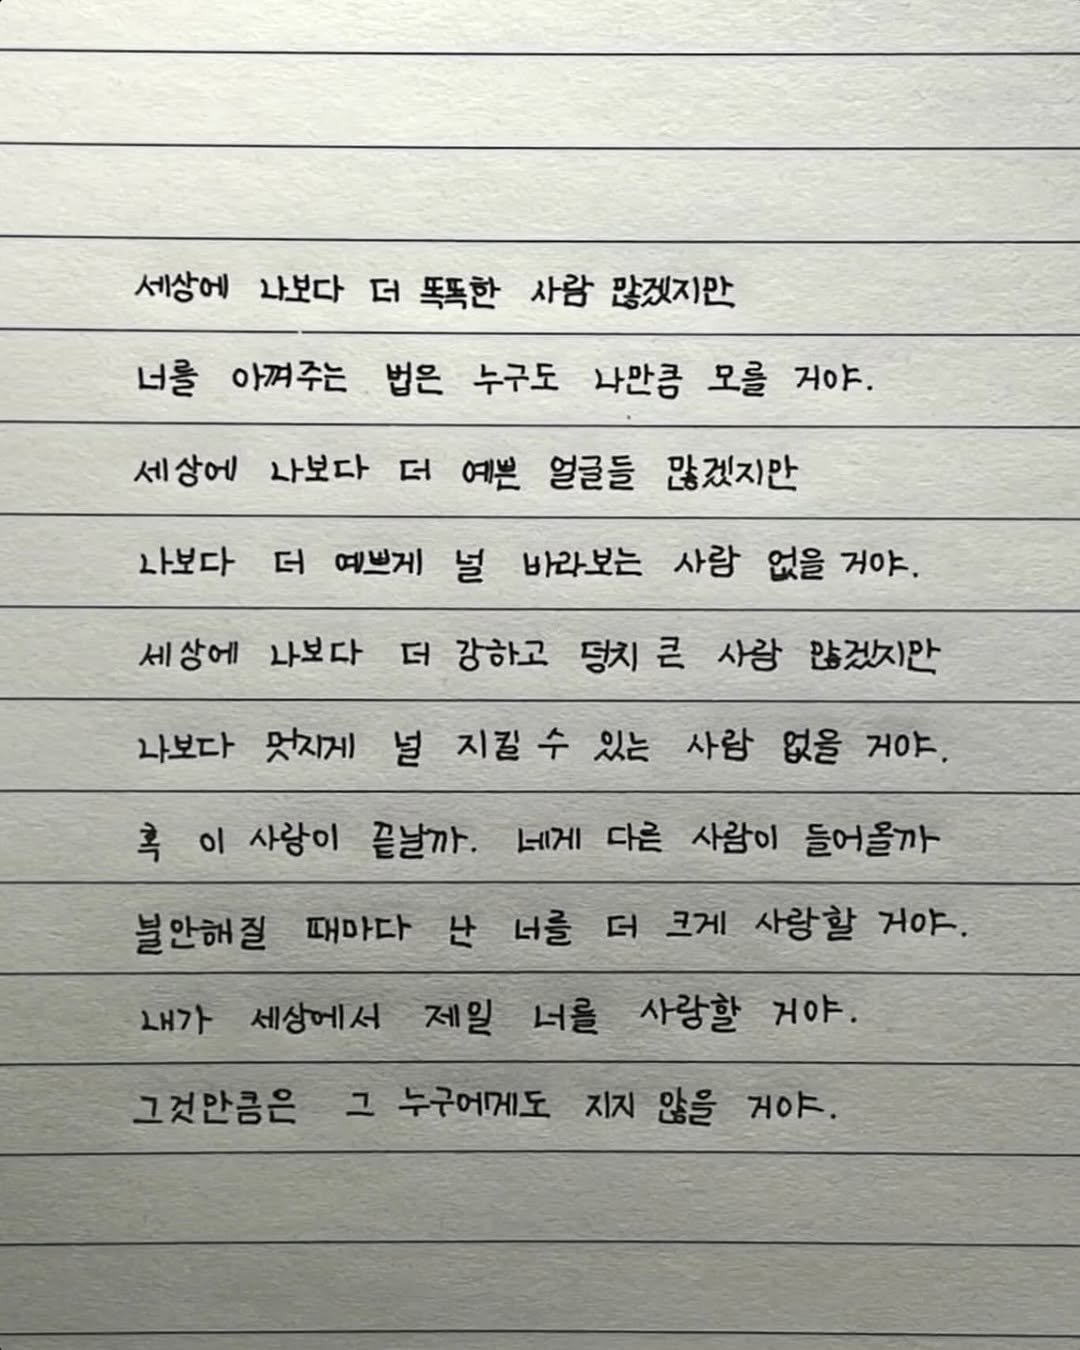 세상에 나보다 더 똑똑한 사람 많겠지만
너를 아껴주는 법은 누구도 나만큼 모를 거야.
세상에 나보다 더 예쁜 얼굴들 많겠지만
나보다 더 예쁘게 널 바라보는 사람 없을 거야.
세상에 나보다 더 강하고 덩치 큰 사람 많겠지만
나보다 멋지게 널 지킬 수 있는 사람 없을 거야.
혹 이 사랑이 끝날까. 네게 다른 사람이 들어올까
불안해질 때마다 난 너를 더 크게 사랑할 거야.
내가 세상에서 제일 너를 사랑할 거야.
그것만큼은 그 누구에게도 지지 않을 거야.